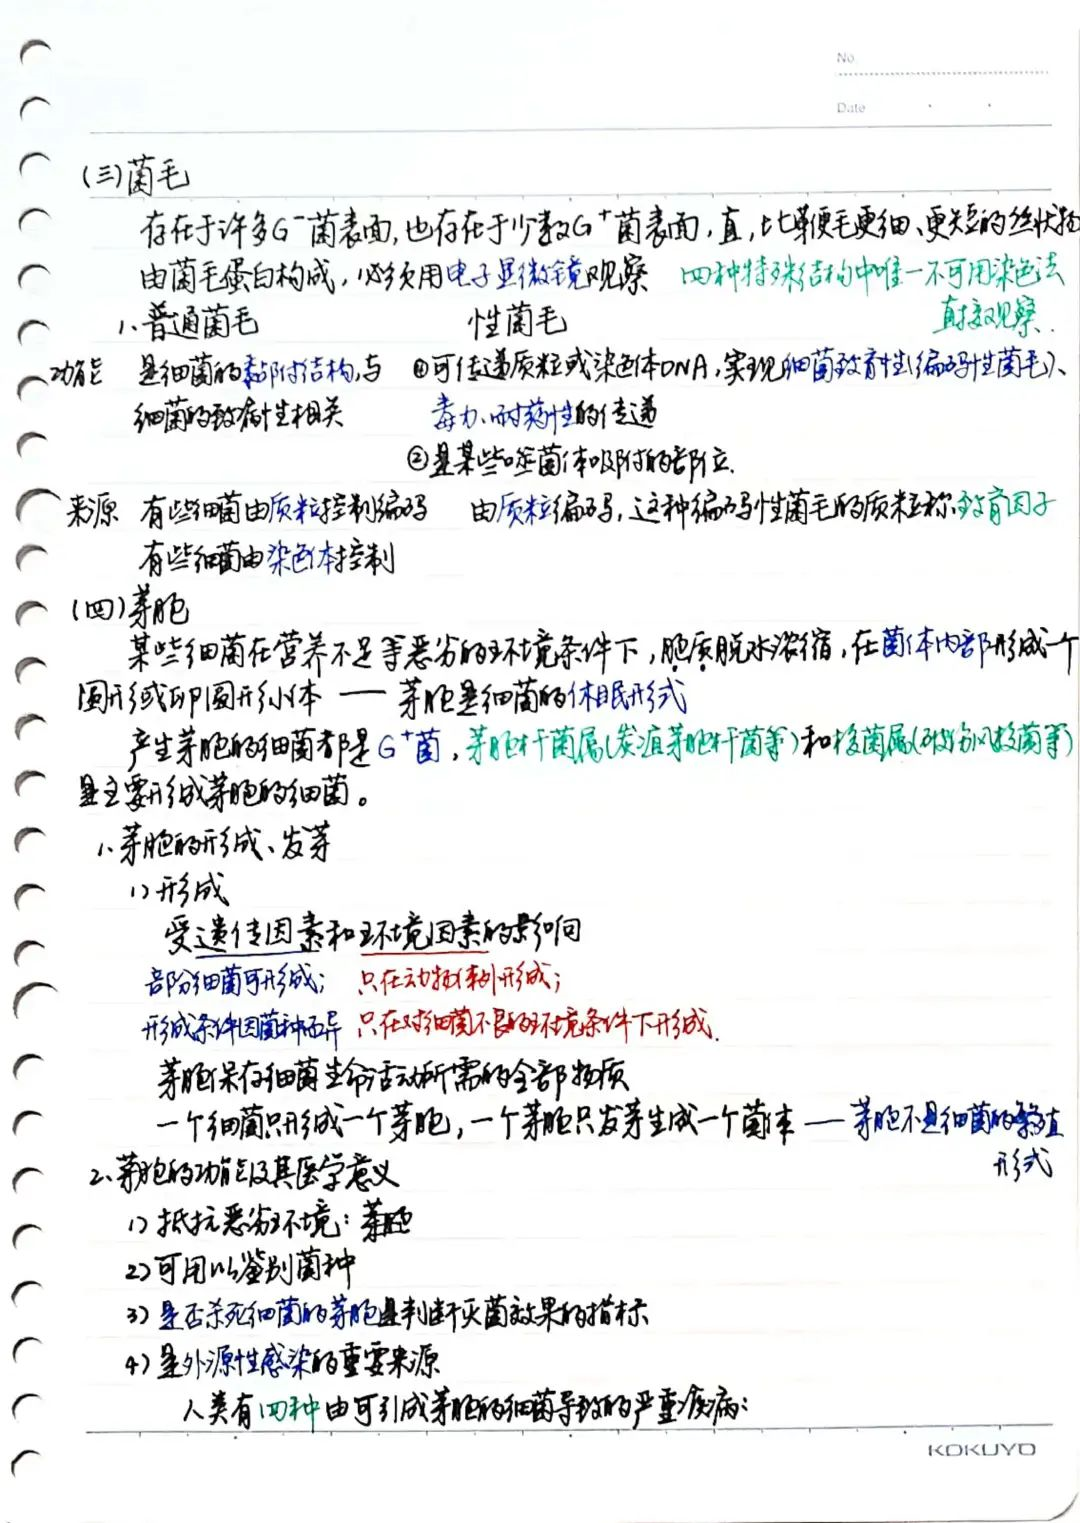 No.
Date
(三)菌毛
存在于许多G⁻菌表面,也存在于少数G⁺菌表面,直,比鞭毛更细、更短的丝状物
由菌毛蛋白构成,必须用电子显微镜观察 四种特殊结构中唯一不可用染色法
直接观察.
1、普通菌毛 性菌毛
功能 是细菌的黏附结构,与 ①可传递质粒或染色体DNA,实现细菌致育性(编码性菌毛)、
细菌的致病性相关 毒力、耐药性的传递
②是某些噬菌体吸附的部位.
来源 有些细菌由质粒控制编码 由质粒编码,这种编码性菌毛的质粒称致育因子
有些细菌由染色体控制
(四)芽胞
某些细菌在营养不足等恶劣的环境条件下,胞质脱水浓缩,在菌体内部形成一个
圆形或卵圆形小体 — 芽胞是细菌的休眠形式
产生芽胞的细菌都是G⁺菌,芽胞杆菌属(炭疽芽胞杆菌等)和梭菌属(破伤风梭菌等)
是主要形成芽胞的细菌。
1、芽胞的形成、发芽
1)形成
受遗传因素和环境因素的影响
部分细菌可形成; 只在动物体外形成;
形成条件因菌种而异 只在对细菌不良的环境条件下形成.
芽胞保存细菌生命活动所需的全部物质
一个细菌只形成一个芽胞,一个芽胞只发芽生成一个菌体 — 芽胞不是细菌的繁殖
形式
2、芽胞的功能及其医学意义
1)抵抗恶劣环境:芽胞
2)可用以鉴别菌种
3)是否杀死细菌的芽胞是判断灭菌效果的指标
4)是外源性感染的重要来源
人类有四种由可引成芽胞的细菌导致的严重疾病:
KOKUYO